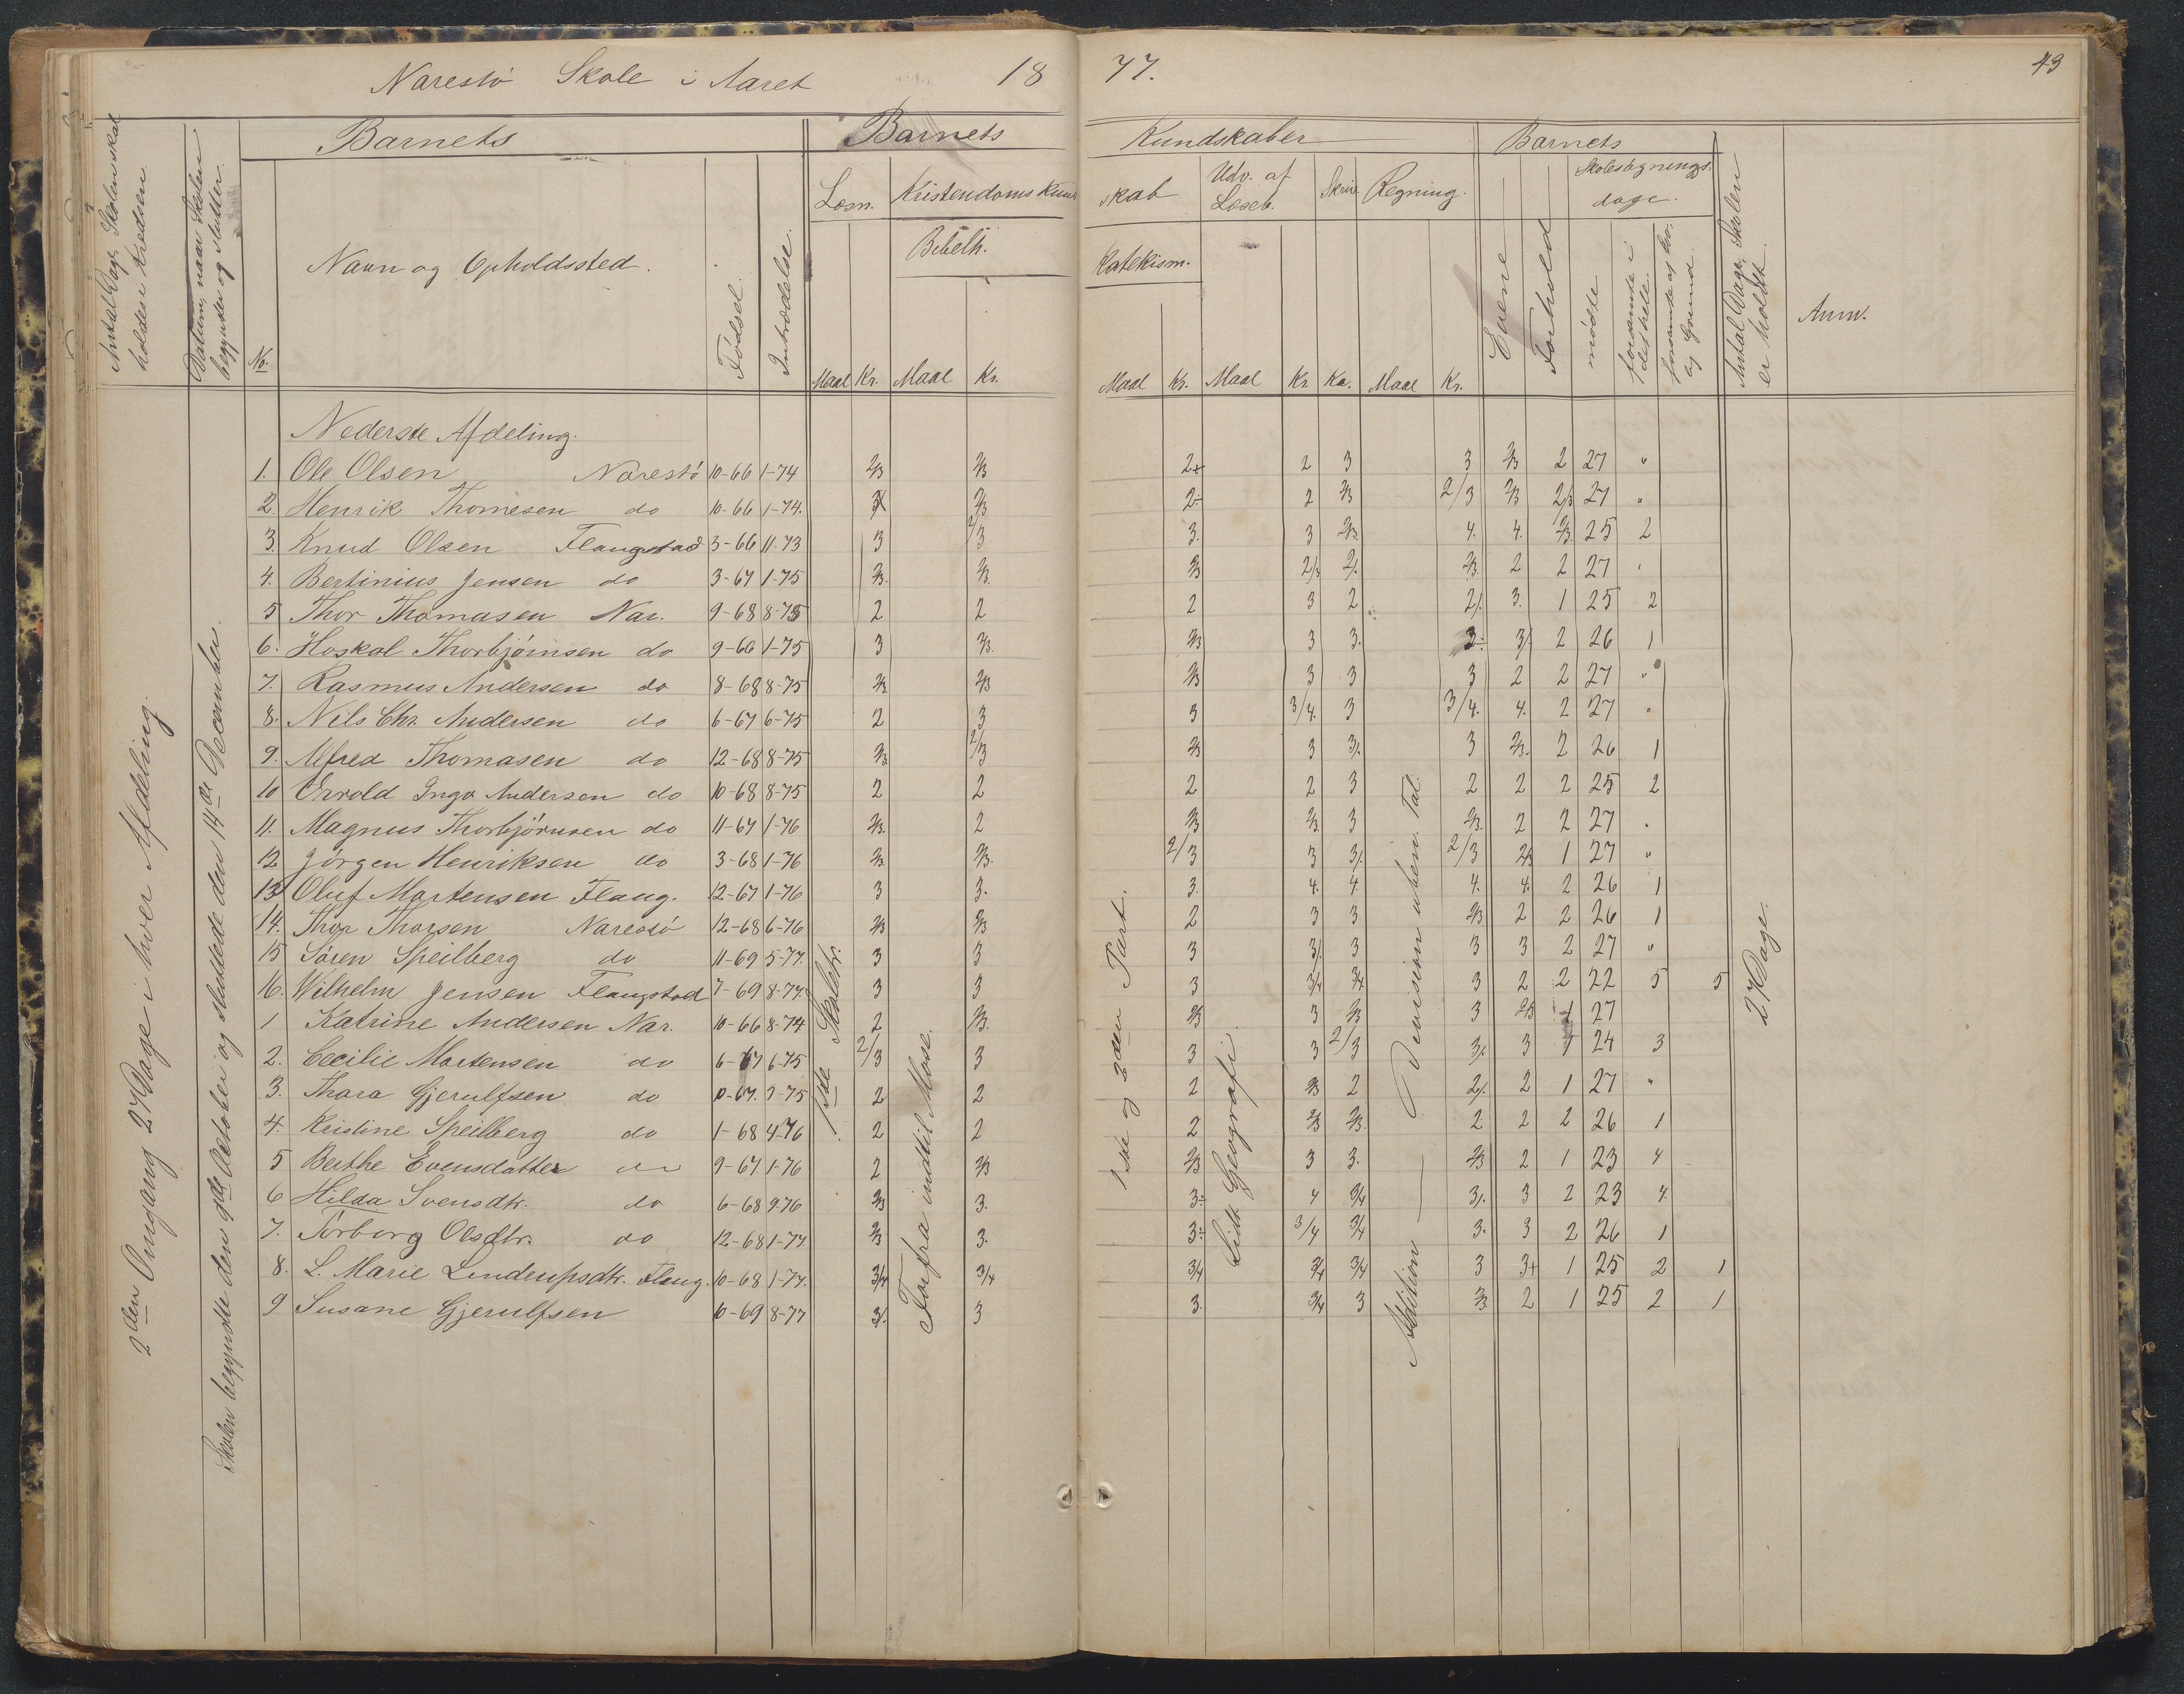 Narestø Skole i Aaret 18 77. 43
Antal Dage, Skolen skal holdes i Kredsen
Datum, naar Skolen begynder og slutter.
Barnets
Barnets
Kundskaber
Barnets
No.
Navn og Opholdssted.
Fødsel.
Indtrædelse.
Læsn.
Kristendoms Kund
skab
Udv. af Læseb.
Skriv.
Regning.
Evne
Forhold
Skolesøgnings-
dage.
Bibelh.
Katekism.
mødte
forsømte i det hele
forsømte af lov. og Grund
Antal Dage, Skolen er holdt
Anm.
Maal Kr. Maal Kr. Maal Kr. Maal Kr. Ka. Maal Kr.
Nederste Afdeling.
1. Ole Olsen Narestø 10-66 1-74 2/3 2/3 2+ 2 3 3 2/3 2 27 "
2. Henrik Thomesen do 10-66 1-74. 2/3 2÷ 2 2/3 2/3 2/3 2/3 27 "
3. Knud Olsen Flangstad 3-66 11-73 3 2/3 3. 3 2/3 4. 4. 2/3 25 2
4. Bertinius Jensen do 3-67 1-75 2/3. 2/3. 2/3 2/3 2/. 2/3 2 2 27 "
5 Thor Thomasen Nar. 9-68 8-75 2 2 2 3 2 2/. 3. 1 25 2
6. Hoskol Thorbjørnsen do 9-66 1-75 3 2/3. 2/3 3 3. 3÷ 3/. 2 26 1
7. Rasmus Andersen do 8-68 8-75 2/3 2/3 2/3 3 3 3 2 2 27 "
8. Nils Chr. Andersen do 6-67 6-75 2 3 3 3/4. 3 3/4. 4. 2 27 "
9. Alfred Thomasen do 12-68 8-75 2/3 2/3 2/3 3 3/. 3 2/3. 2 26 1
10 Ingv Andersen do 10-68 8-75 2 2 2 2 3 2 2 2 25 2
11. Magnus Thorbjørnsen do 11-67 1-76 2/3. 2 2/3 2/3 3 2/3. 2 2 27 "
12 Jørgen Henriksen do 3-68 1-76 2/3 2/3. 2/3 3 3/. 2/3 2/3 1 27 "
13 Oluf Mortensen Flang. 12-67 1-76 3 3. 3. 4. 4. 4. 4. 2 26 1
14. Thor Thorsen Narestø 12-68 6-76 2/3 2/3 2 3 3 2/3 2 2 26 1
15 Søren Speilberg do 11-69 5-77. 3 3 3 3/. 3 3 3 2 27 "
16. Wilhelm Jensen Flangstad 7-69 8-77. 3 3 3 3/4 3/4 3 2 2 22 5 5
1 Katrine Andersen Nar. 10-66 8-74 2 2/3. 2/3 3 2/3 3 2/3 1 27
2. Cecilie Mortensen do 6-67 6-75 2/3 3 3 3 2/3 3/. 3 1 24 3
3. Thora Gjerulfsen do 2 2 2 2/3 2 2/. 2 1 27 "
4. Kristine Speilberg do 1-68 4-76 2 2 2 2/3 2/3. 2 2 2 26 1
5 Berthe Evensdatter do 9-67 1-76 2 2/3 2/3 3 3. 2/3 2 1 23 4
6 Hilda Svensdtr. do 6-68 9-76 2/3 3. 3÷ 4 3/4 3/. 3 2 23 4.
7. Torborg Olsdtr. do 12-68 1-77. 2/3 3. 3÷ 3/4 3/4 3. 3 2 26 1
8. L. Marie Lendrupsdtr. Flang. 10-68 1-77. 3/4 3/4 3/4 3/4 3/4 3 3+ 1 25 2 1
9 Susane Gjerulfsen 8-77 3/. 3 3. 3/4 3 2/3 2 1 25 2 1
2den Omgang 27 Dage i hver Afdeling.
Skolen begyndte den 9de Oktober og sluttede den 14de December.
1ste Skoletr.
Forfra indtil Mose.
1ste og 2den Part.
Lidt Geografi.
Addition — Division uben. Tal.
27 Dage.